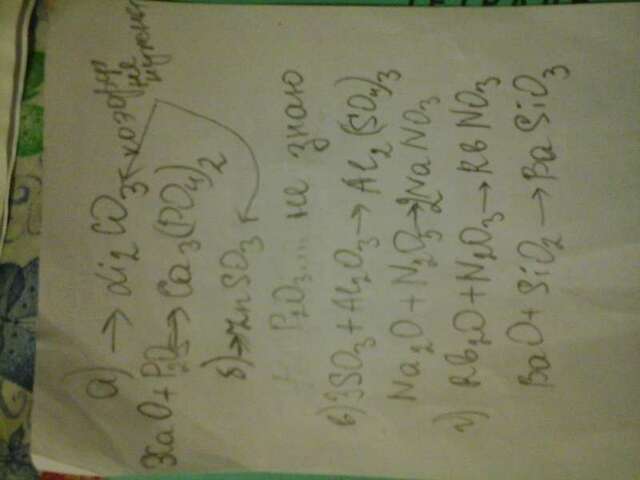 а) → Li₂CO₃ ← коэф-нт
не
нужны
3CaO + P₂O₅ → Ca₃(PO₄)₂
б) → ZnSO₃
P₂O₃... не знаю
в) 3SO₃ + Al₂O₃ → Al₂(SO₄)₃
Na₂O + N₂O₅ → 2NaNO₃
г) Rb₂O + N₂O₃ → RbNO₃
BaO + SiO₂ → BaSiO₃